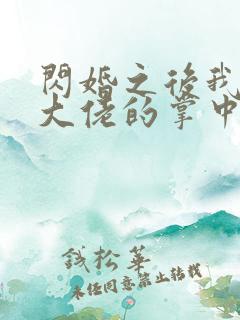 閃婚之後我
大佬的掌中
錢松華
未經同意禁止轉載